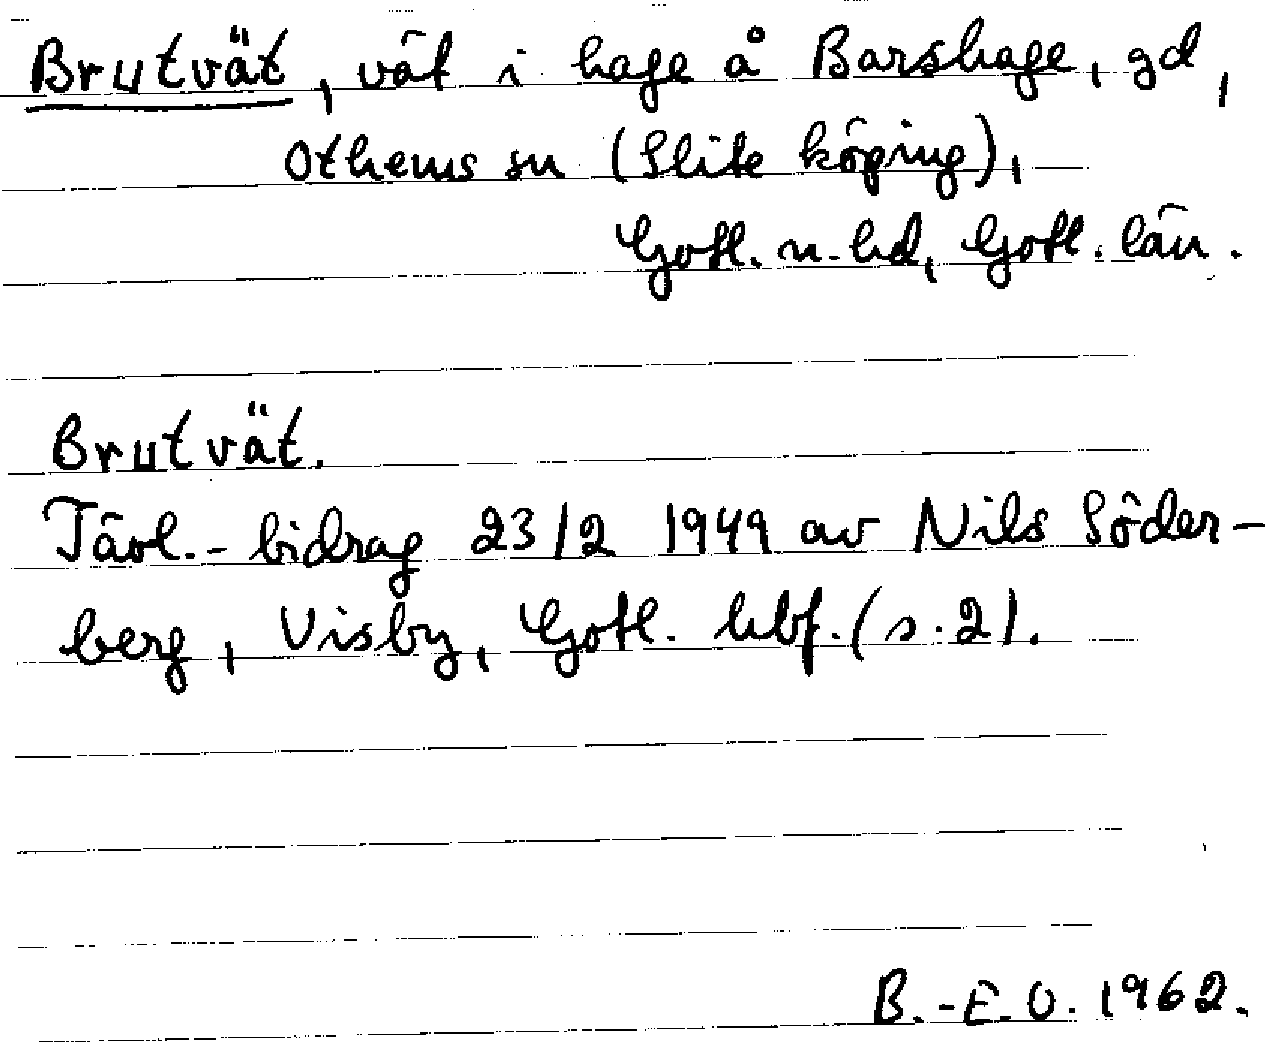 Brutvät, vät i hage å Barshage, gd,
Othems sn (Slite köping),
Gotl. n. hd, Gotl. län.
Brutvät.
Tävl.-bidrag 23/2 1949 av Nils Söder-
berg, Visby, Gotl. hbf. (s. 2).
B.-E. O. 1962.